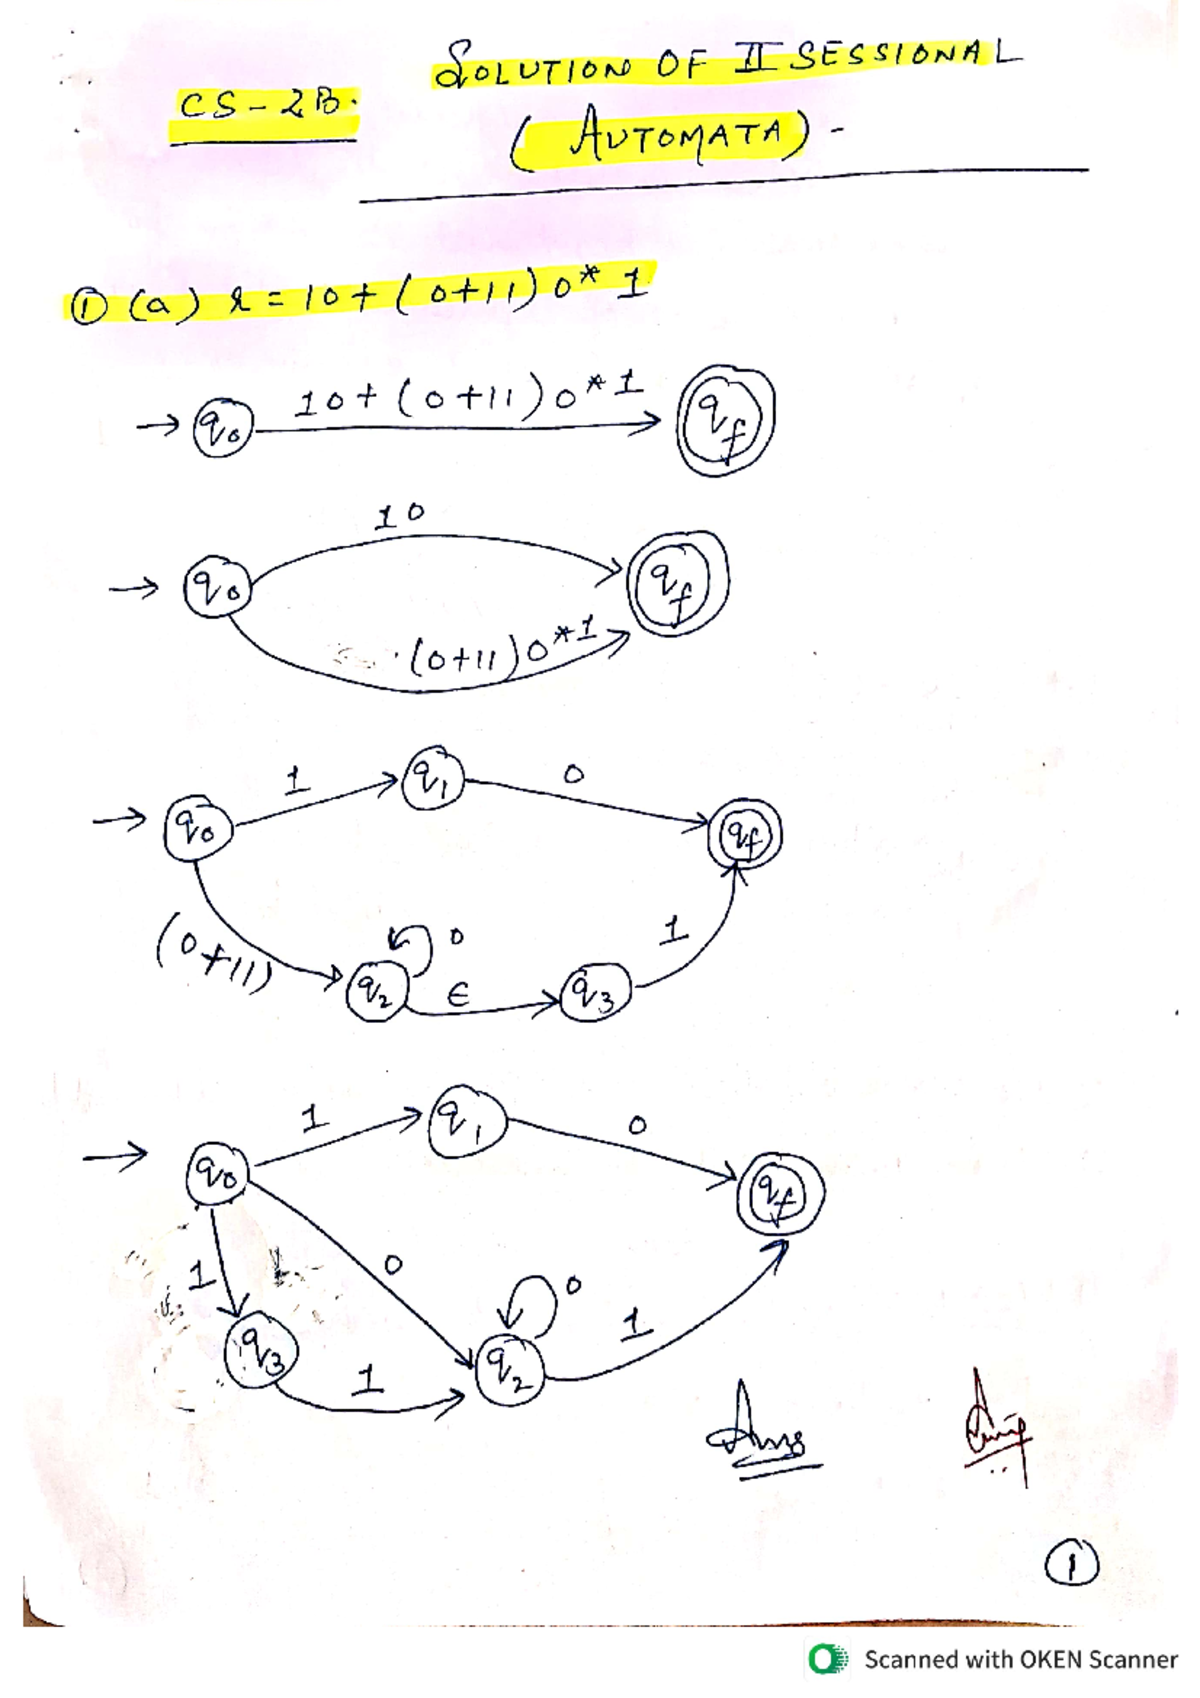 SOLUTION OF II SESSIONAL
CS-2B.
(AUTOMATA) -
① (a) r = 10+(0+11)0*1
→ q0 10+(0+11)0*1 qf
10
→ q0 qf
(0+11)0*1
1 q1 0
→ q0 qf
(0+11) 0 1
q2 ε q3
1 q1 0
→ q0 qf
1 0 0 1
q3 1 q2
Ans
①
Scanned with OKEN Scanner